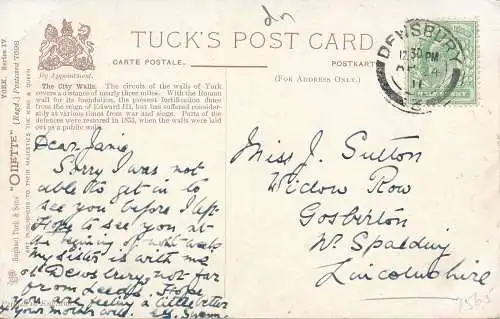 TUCK'S POST CARD
CARTE POSTALE.
POSTKARTE
(FOR ADDRESS ONLY.)
By Appointment.
The City Walls. The circuit of the walls of York
covers a distance of nearly three miles. With the Roman
wall for its foundation, the present fortification dates
from the reign of Edward III, but has suffered consider-
ably at various times from war and siege. Parts of the
defences were restored in 1833, when the walls were laid
out as a public walk.
YORK. Series IV.
"OILETTE" (Regd.) Postcard 7868
Raphael Tuck & Sons'
DEWSBURY
12.30 PM
11
Dear Janie,
Sorry I was not
able to get in to
see you before I left
Hope to see you at
the beginning of next week
my sister is with me
at Dewsbury, not far
from Leeds. Hope
you are feeling a little better
& your mother
Miss J. Sutton
Widow Row
Gosberton
Nr. Spalding
Lincolnshire